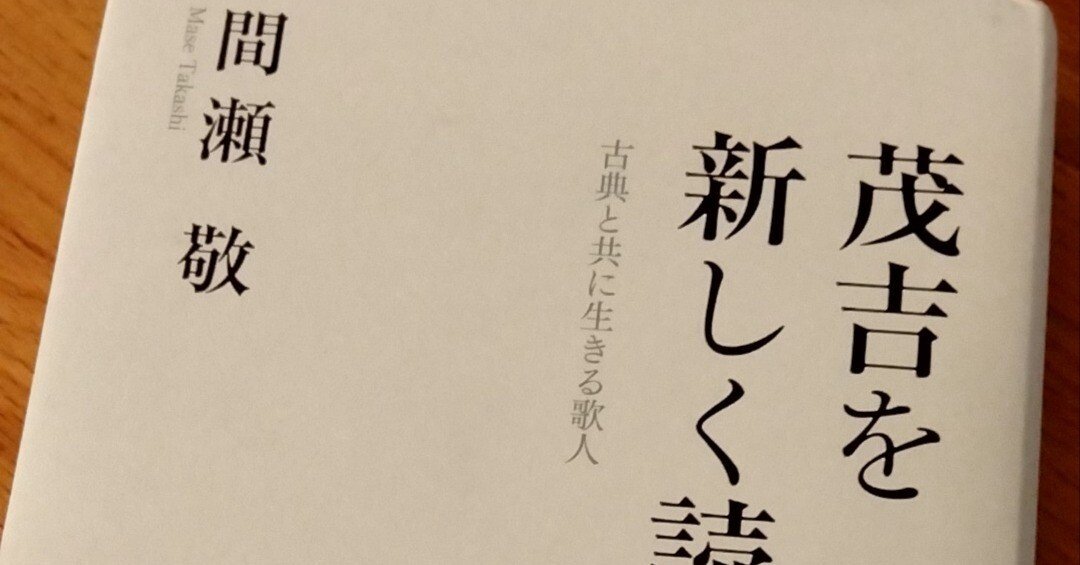 茂吉を
新しく読
古典と共に生きる歌人
間瀬 敬
Mase Takashi